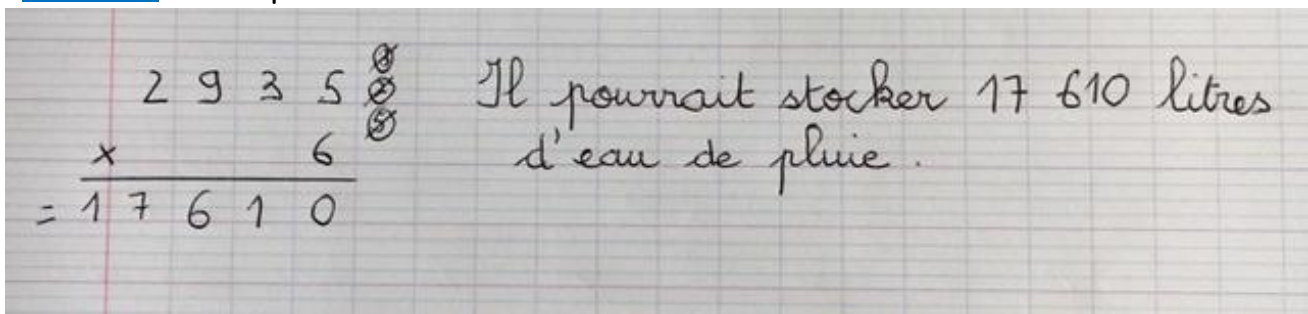 2 9 3 5
x 6
= 1 7 6 1 0
Il pourrait stocker 17 610 litres
d'eau de pluie.